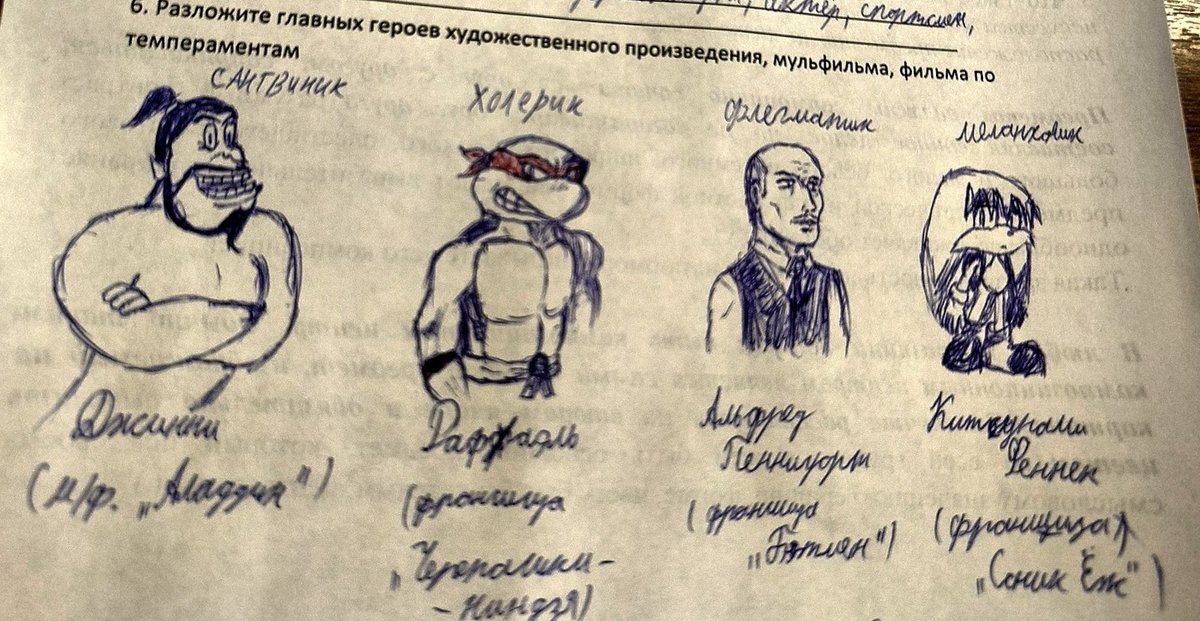 актёр, спортсмен,
6. Разложите главных героев художественного произведения, мульфильма, фильма по
темпераментам
САНГВИНИК
ХОЛЕРИК
Флегматик
меланхолик
Джинни
(м/ф. „Аладдин")
Раффаэль
(франшиза
„Черепашки-
-Ниндзя)
Альфред
Пенниуорт
(франшиза
„Бэтмен")
Китсунами
Феннек
(франшиза)
„Соник Ёж")